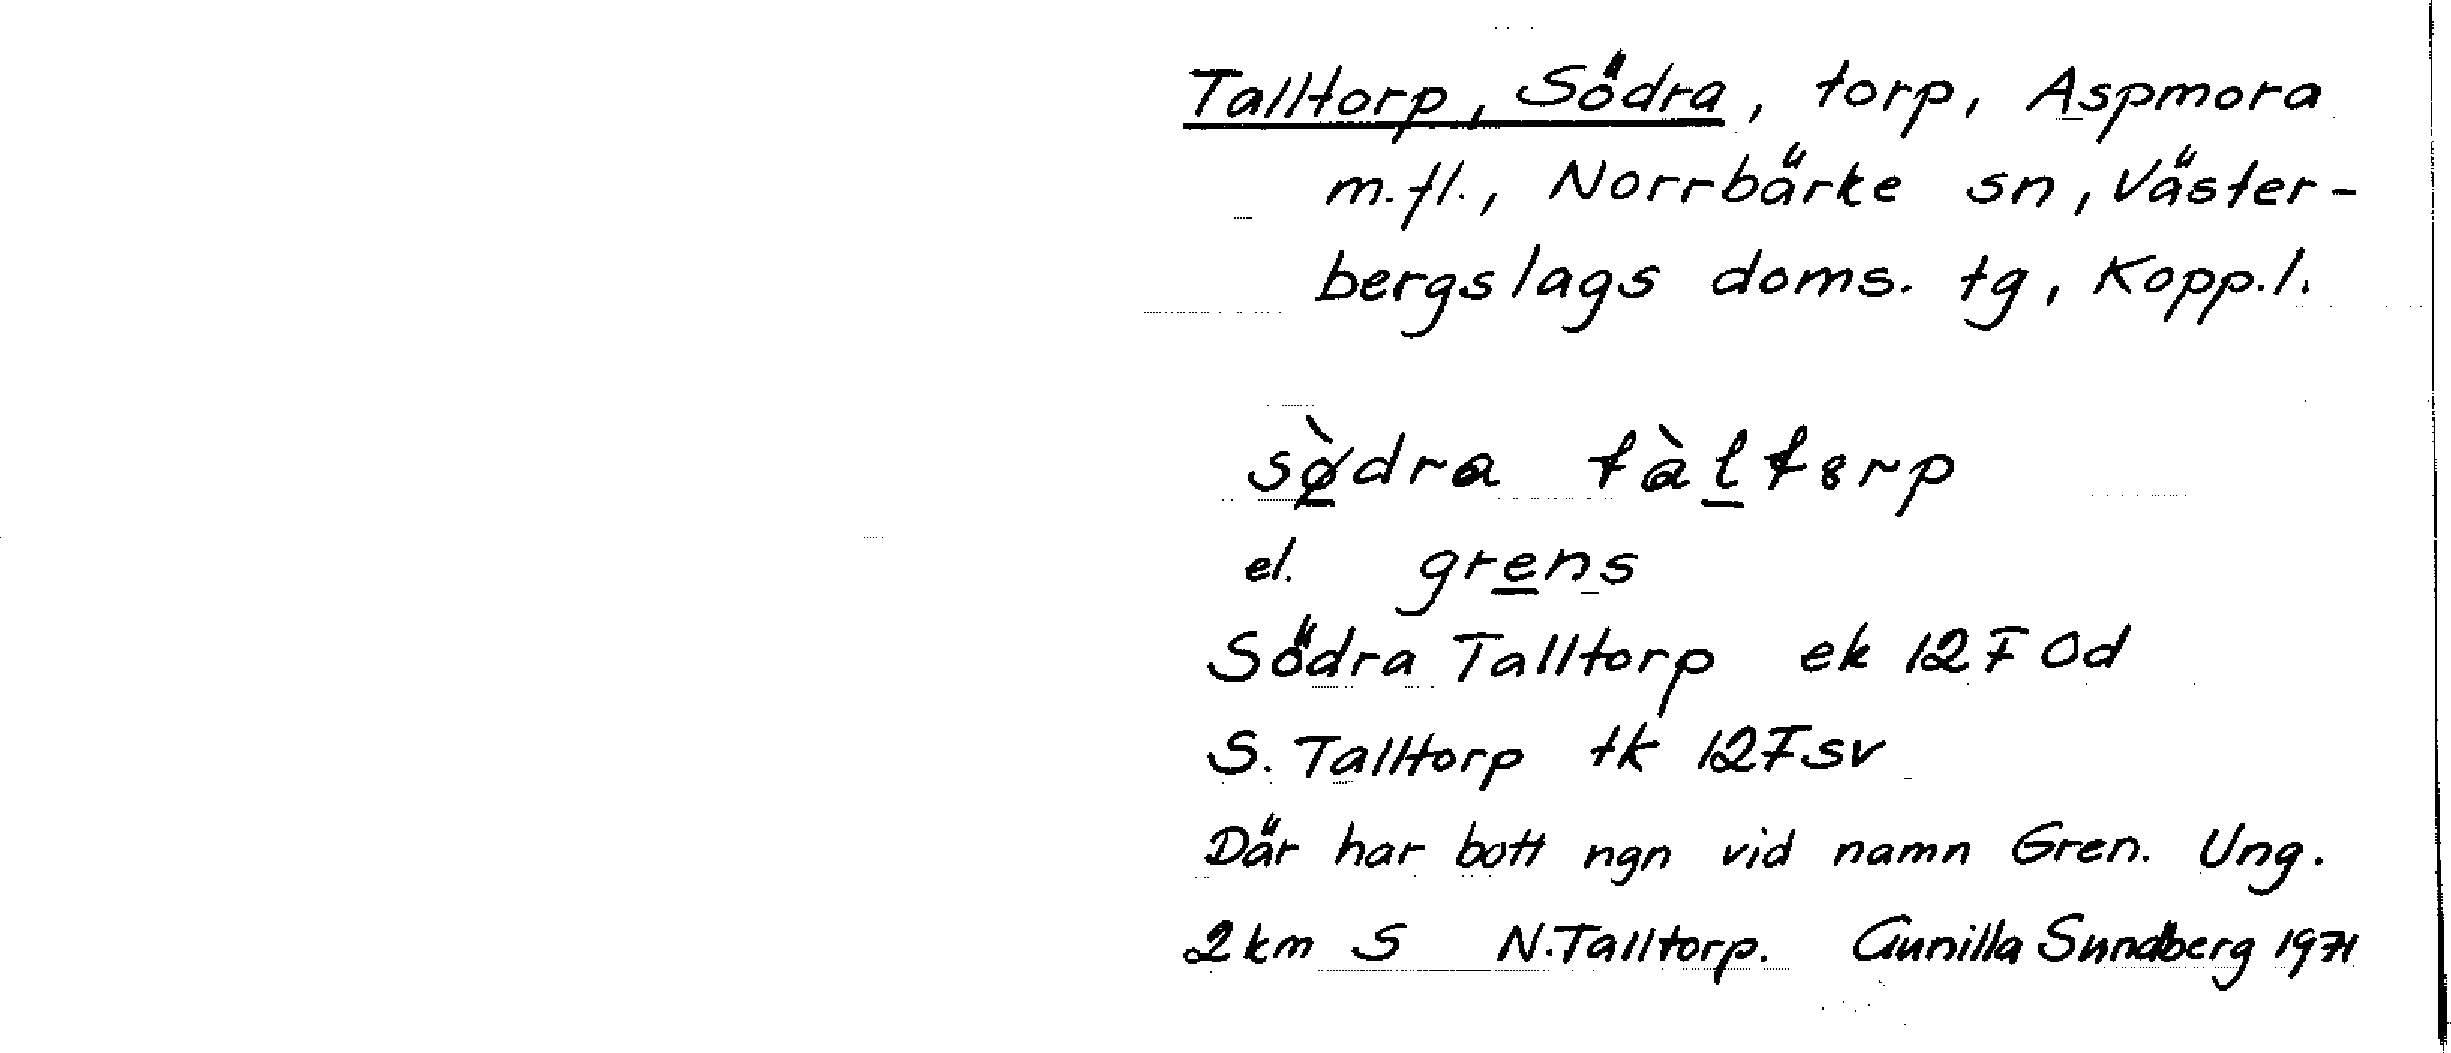 Talltorp, Södra, torp, Aspmora
m.fl., Norrbärke sn, Väster-
bergslags doms. tg, Kopp.l.
sø̀dra tàltȣrp
el. grens
Södra Talltorp ek 12F0d
S. Talltorp tk 12Fsv
Där har bott ngn vid namn Gren. Ung.
2km S N.Talltorp. Gunilla Sundberg 1971